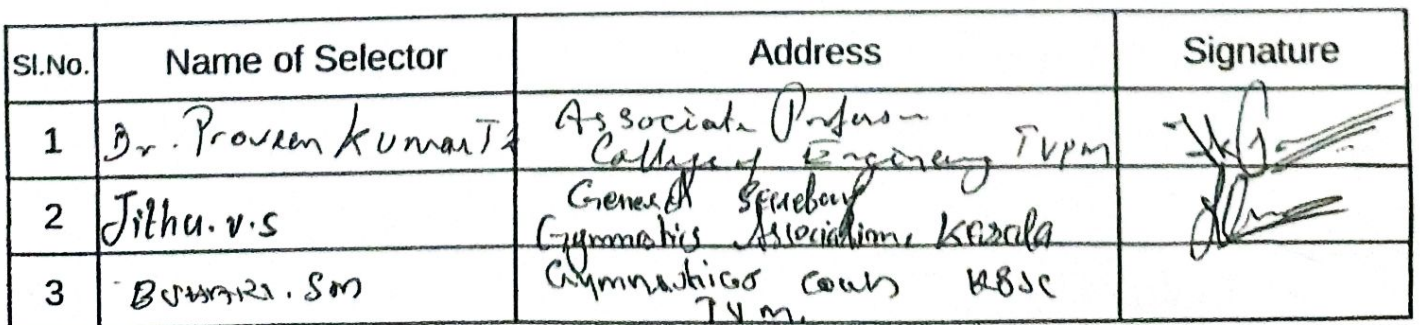 Sl.No. Name of Selector Address Signature
1 Dr. Praveen Kumar Associate Professor
College of Engineering Tvpm
2 Jithu.v.s General Secretary
Gymnastics Association, Kerala
3 Gymnastics Coach KSSC
TVM.